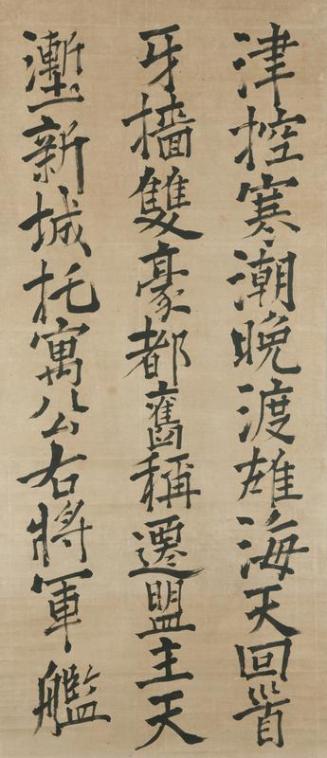 津控寒潮晚渡雄海天回首
牙檣雙豪都舊稱遷盟主天
壍新城托寓公右將軍艦